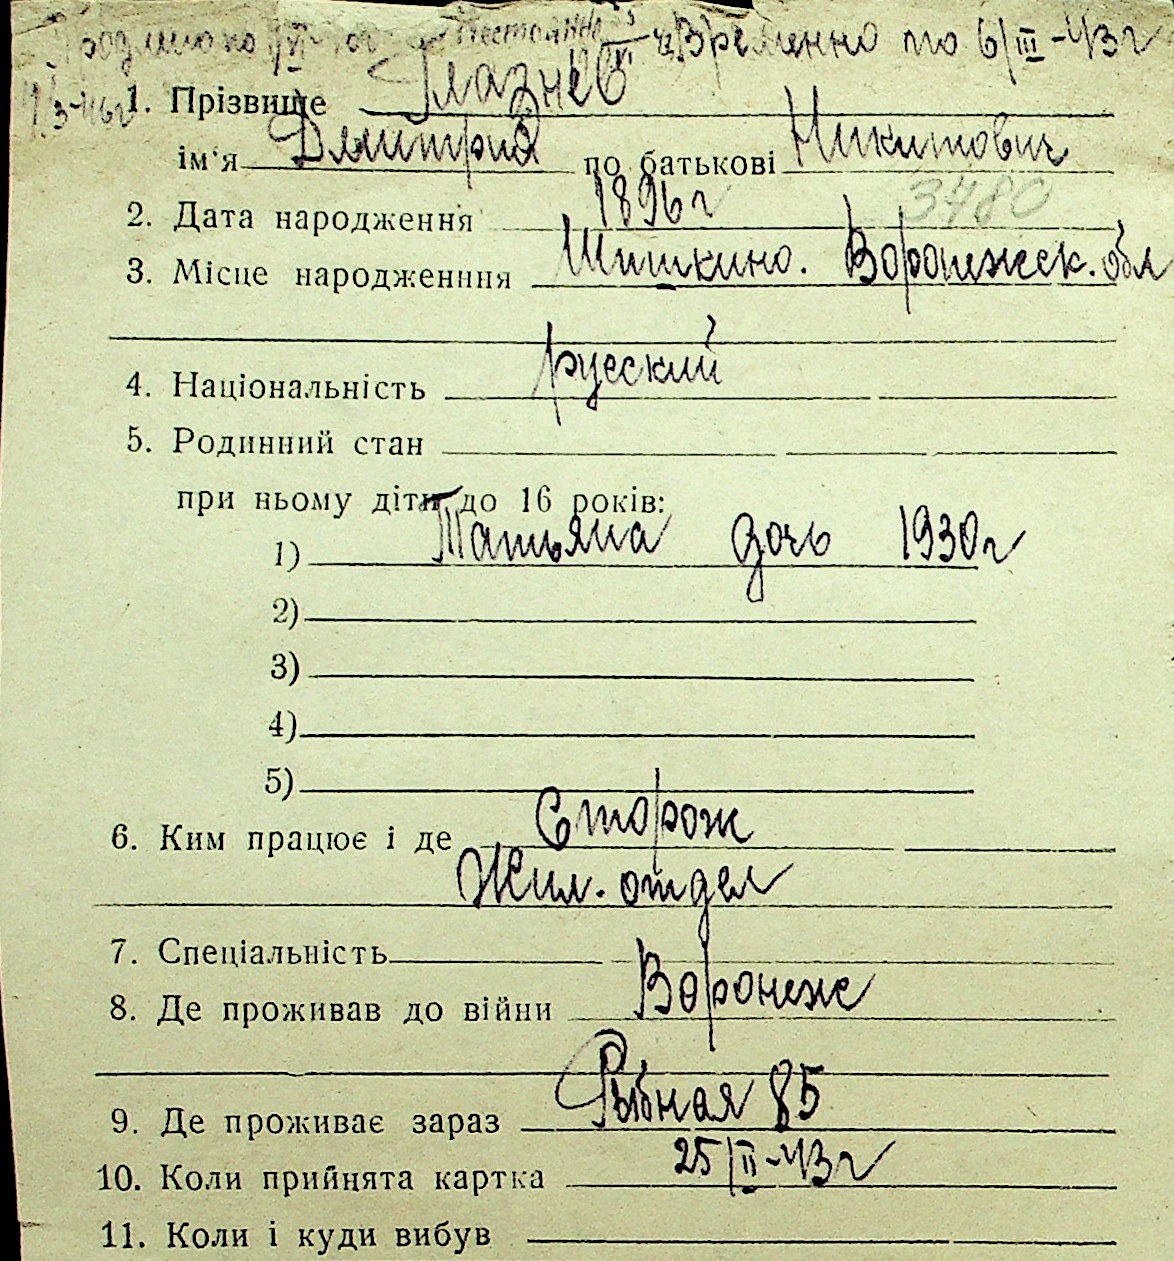 Временно по 6/III-43г
1. Прізвище Глазнев
ім'я Дмитрий по батькові Никитович
2. Дата народження 1896г 3480
3. Місце народженння Шишкино. Воронжск. обл
4. Національність русский
5. Родинний стан
при ньому діти до 16 років:
1) Татьяна дочь 1930г
2)
3)
4)
5)
6. Ким працює і де Сторож
Жил. отдел
7. Спеціальність
8. Де проживав до війни Воронеж
9. Де проживає зараз Рыбная 85
10. Коли прийнята картка 25/II-43г
11. Коли і куди вибув